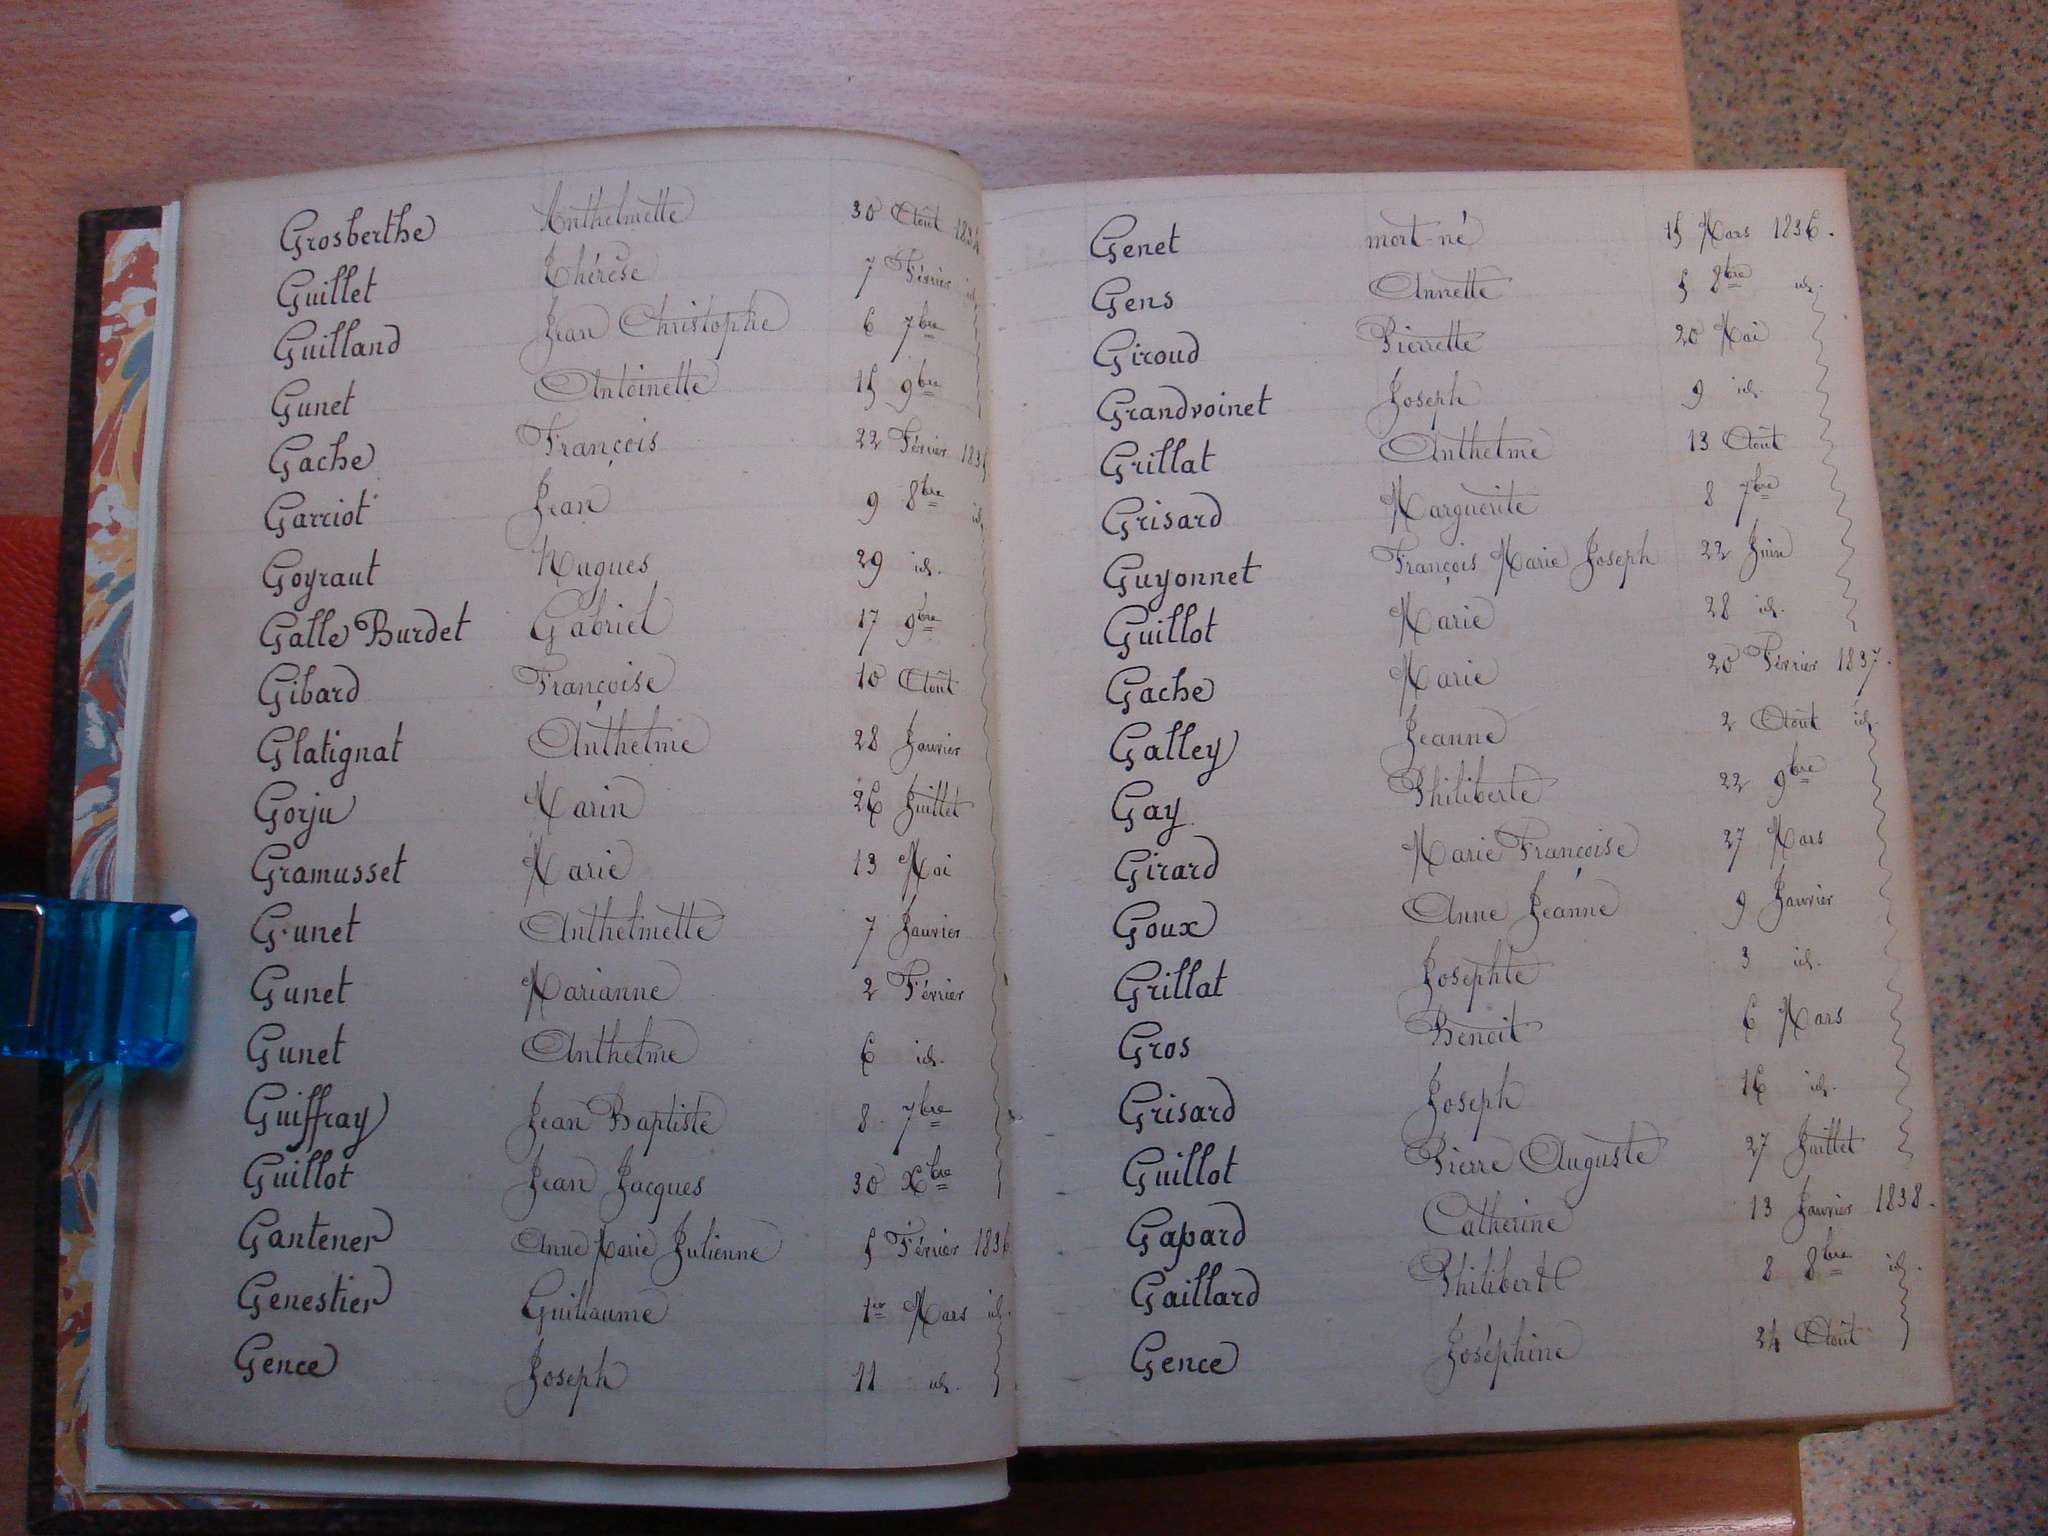 Grosberthe Anthelmette 30 Août
Guillet Thérèse 7 Février id.
Guilland Jean Christophe 6 7bre
Gunet Antoinette 15 9bre
Gache François 22 Février 1835
Garriot Jean 9 8bre id.
Goyraut Hugues 29 id.
Galle Burdet Gabriel 17 9bre
Gibard Françoise 10 Août
Glatignat Anthelme 28 Janvier
Gorju Marin 26 Juillet
Gramusset Marie 13 Mai
Gunet Anthelmette 7 Janvier
Gunet Marianne 2 Février
Gunet Anthelme 6 id.
Guiffray Jean Baptiste 8 7bre
Guillot Jean Jacques 30 Xbre
Gantener Anne Marie Julienne 5 Février 1836
Genestier Guillaume 1er Mars id.
Gence Joseph 11 id.
Genet mort-né 15 Mars 1836.
Gens Annette 5 8bre id.
Giroud Pierrette 20 Mai
Grandvoinet Joseph 9 id.
Grillat Anthelme 13 Août
Grisard Marguerite 8 7bre
Guyonnet François Marie Joseph 22 Juin
Guillot Marie 28 id.
Gache Marie 20 Février 1837.
Galley Jeanne 2 Août id.
Gay Philiberte 22 9bre
Girard Marie Françoise 27 Mars
Goux Anne Jeanne 9 Janvier
Grillat Josephte 3 id.
Gros Benoit 6 Mars
Grisard Joseph 16 id.
Guillot Pierre Auguste 27 Juillet
Gapard Catherine 13 Janvier 1838.
Gaillard Philibert 8 8bre id.
Gence Joséphine 24 Août